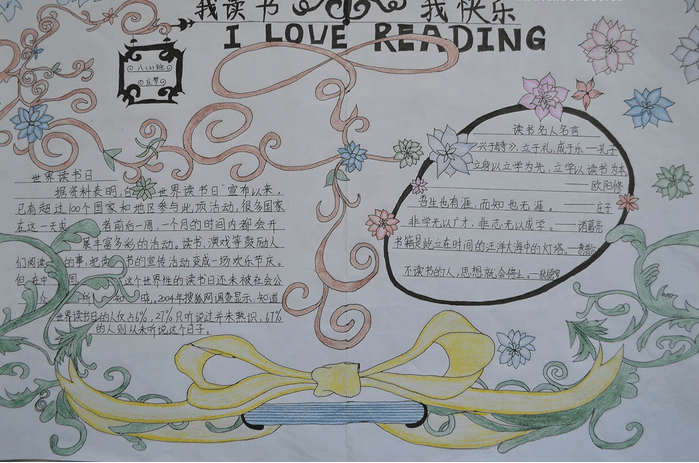 我读书 我快乐
I LOVE READING
八(3)班
世界读书日
据资料表明,自"世界读书日"宣布以来,
已有超过100个国家和地区参与此项活动,很多国家
在这一天或者前后一周、一个月的时间内都会开
展丰富多彩的活动。读书、演戏等鼓励人
们阅读的事,把 书的宣传活动变成一场欢乐节庆。
但在中国 这个世界性的读书日还未被社会公
2004年搜狐网调查显示,知道
世界读书日的人仅占6%,27%只听说过并未熟识,67%
的人则从未听说这个日子。
读书名人名言
兴于《诗》,立于礼,成于乐——孔子
立身以立学为先,立学以读书为本
——欧阳修
吾生也有涯,而知也无涯。——庄子
非学无以广才,非志无以成学。——诸葛亮
书籍是屹立在时间的汪洋大海中的灯塔。
不读书的人,思想就会停止。——狄德罗